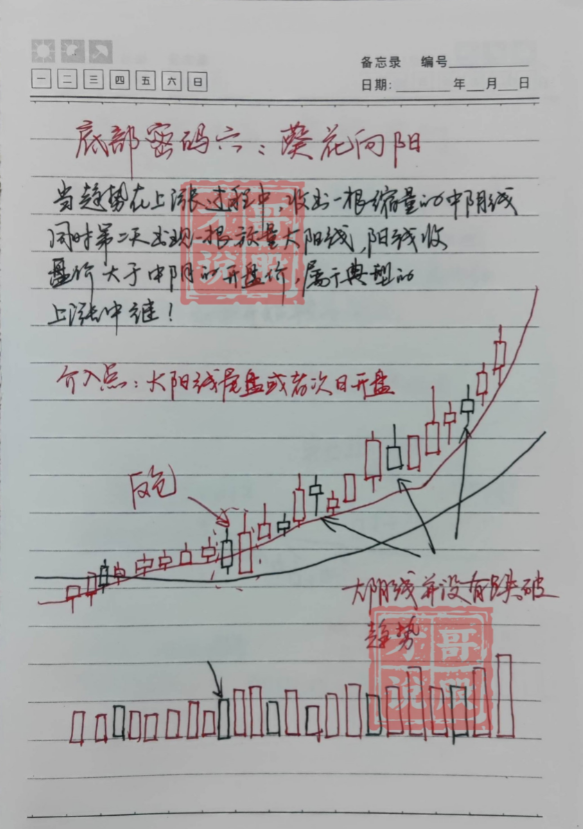 备忘录 编号
一 二 三 四 五 六 日
日期: 年 月 日
底部密码六：葵花向阳
当趋势在上涨过程中，收出一根缩量的中阴线
同时第二天出现一根放量大阳线，阳线收
盘价大于中阴的开盘价，属于典型的
上涨中继！
介入点：大阳线尾盘或者次日开盘
反包
大阴线并没有跌破
趋势
哥
说股
哥
说股